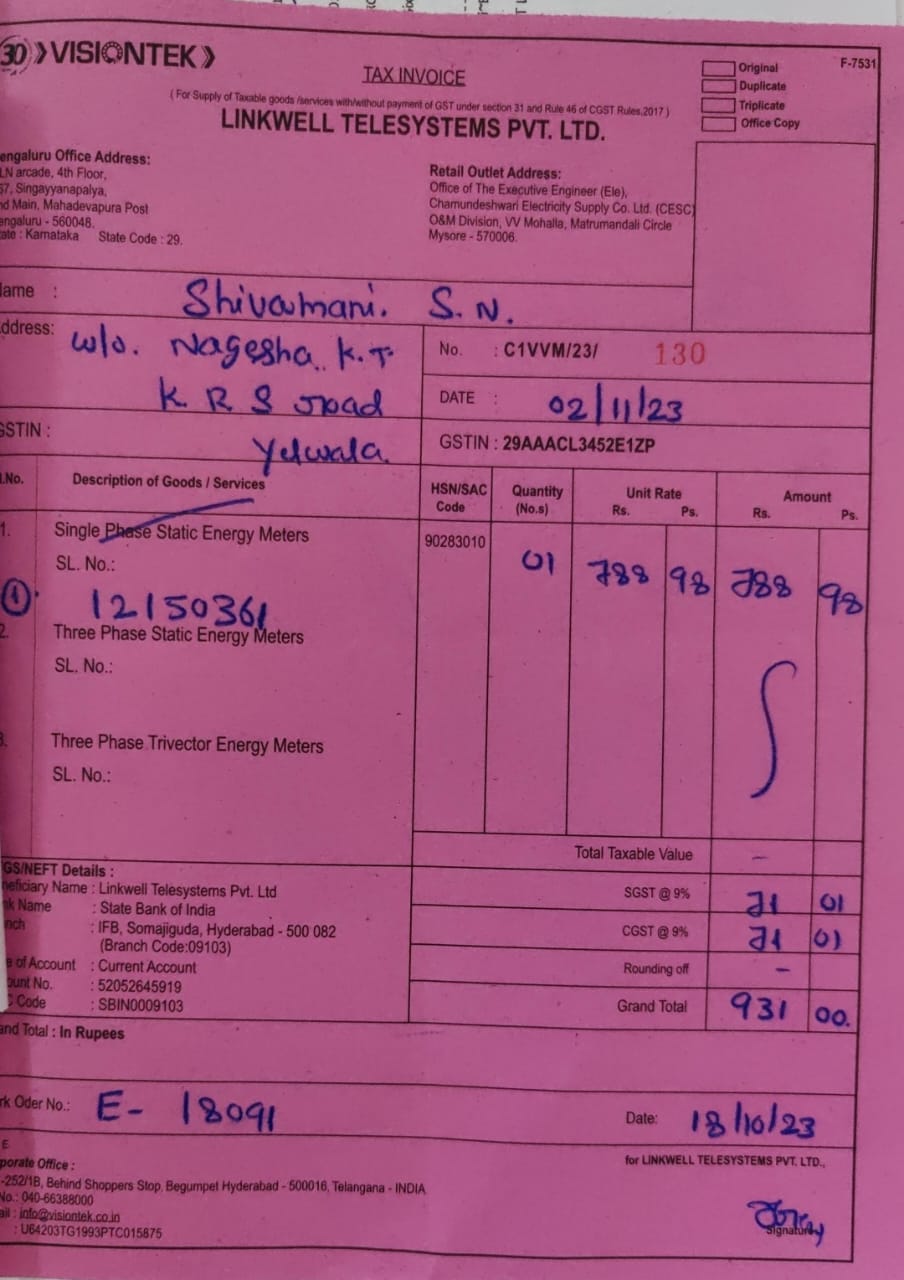 30 VISIONTEK
TAX INVOICE
Original
F-7531
Duplicate
Triplicate
Office Copy
( For Supply of Taxable goods /services with/without payment of GST under section 31 and Rule 46 of CGST Rules,2017 )
LINKWELL TELESYSTEMS PVT. LTD.
engaluru Office Address:
LN arcade, 4th Floor,
67, Singayyanapalya,
nd Main, Mahadevapura Post
engaluru - 560048.
ate : Karnataka State Code : 29.
Retail Outlet Address:
Office of The Executive Engineer (Ele),
Chamundeshwari Electricity Supply Co. Ltd. (CESC)
O&M Division, VV Mohalla, Matrumandali Circle
Mysore - 570006.
lame : Shivamani. S.N.
ddress: w/o. Nagesha K.T
K R S road
Yelwala.
No. : C1VVM/23/ 130
DATE : 02/11/23
GSTIN :
GSTIN : 29AAACL3452E1ZP
.No. Description of Goods / Services HSN/SAC Code Quantity (No.s) Unit Rate Rs. Ps. Amount Rs. Ps.
1. Single Phase Static Energy Meters 90283010 01 788 98 788 98
SL. No.:
1 12150361
2. Three Phase Static Energy Meters
SL. No.:
3. Three Phase Trivector Energy Meters
SL. No.:
Total Taxable Value –
SGST @ 9% 71 01
CGST @ 9% 71 01
Rounding off –
Grand Total 931 00.
GS/NEFT Details :
neficiary Name : Linkwell Telesystems Pvt. Ltd
nk Name : State Bank of India
nch : IFB, Somajiguda, Hyderabad - 500 082
(Branch Code:09103)
e of Account : Current Account
ount No. : 52052645919
C Code : SBIN0009103
and Total : In Rupees
rk Oder No.: E- 18091
Date: 18/10/23
E
porate Office :
-252/1B, Behind Shoppers Stop, Begumpet Hyderabad - 500016, Telangana - INDIA
No.: 040-66388000
ail : info@visiontek.co.in
: U64203TG1993PTC015875
for LINKWELL TELESYSTEMS PVT. LTD.,
Signature